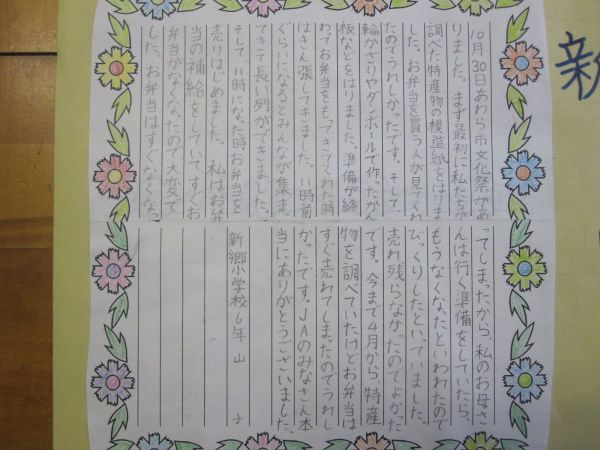 10月30日あわら市文化祭があ
りました。まず最初に私たちが
調べた特産物の模造紙をはりま
した。お弁当を買う人が見てくれ
たのでうれしかったです。そして、
輪かざりやダンボールで作ったかん
板などをはりました。準備が終
わってお弁当をもってきてくれた時
はきん張してきました。11時前
ぐらいになるとみんなが集ま
てきて長い列ができました。
そして11時になった時お弁当を
売りはじめました。私はお弁
当の補給をしていてすぐお
弁当がなくなったので大変で
した。お弁当はすぐなくなっ
ってしまったから、私のお母さ
んは行く準備をしていたら、
もうなくなったといわれたので
びっくりしたといっていました。
売れ残らなかったのでよかった
です。今まで4月から特産
物を調べていたけどお弁当は
すぐ売れてしまったのでうれし
かったです。JAのみなさん本
当にありがとうございました。
新郷小学校6年 山 子
新